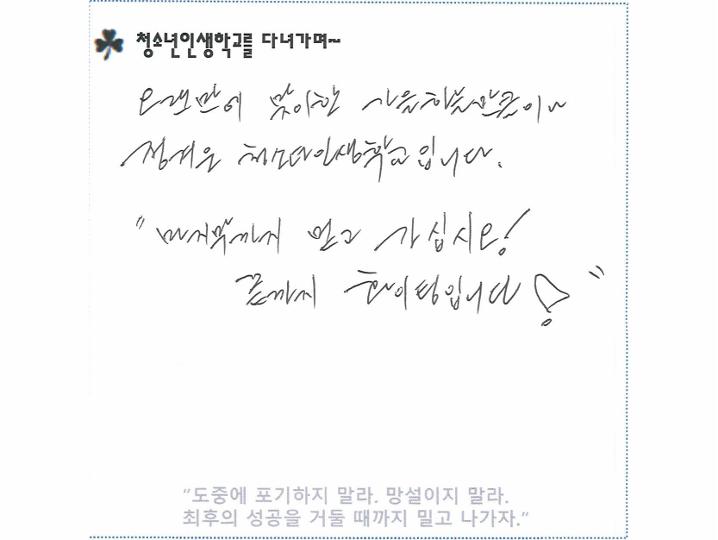 청소년인생학교를 다녀가며~
오랜만에 맞이한 가을하늘만큼이나
정겨운 청소년인생학교입니다.
"마지막까지 믿고 가십시오!
끝까지 화이팅입니다!"
"도중에 포기하지 말라. 망설이지 말라.
최후의 성공을 거둘 때까지 밀고 나가자."